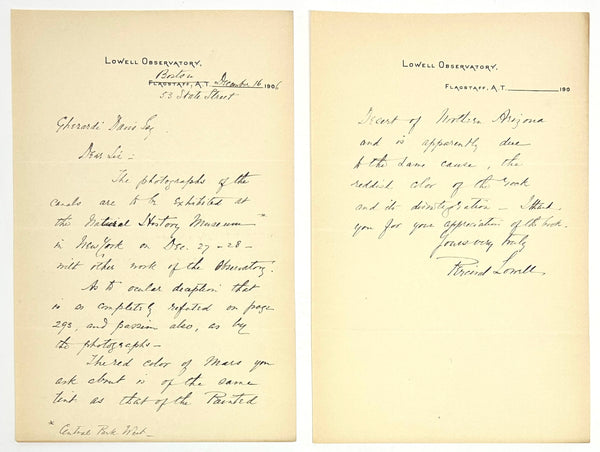 LOWELL OBSERVATORY.
Boston
FLAGSTAFF, A.T. December 16 1906
53 State Street
Gherardi Davis Esq
Dear Sir –
The photographs of the
canals are to be exhibited at
the Natural History Museum *
in New York on Dec. 27 – 28 –
with other work of the Observatory.
As to ocular deception that
is as completely refuted on page
293, and passim also, as by
the photographs –
The red color of Mars you
ask about is of the same
tint as that of the Painted
* Central Park West –
LOWELL OBSERVATORY.
FLAGSTAFF, A.T. 190
Desert of Northern Arizona
and is apparently due
to the same cause, the
reddish color of the rock
and its disintegration – I thank
you for your appreciation of the book.
Yours very truly
Percival Lowell.